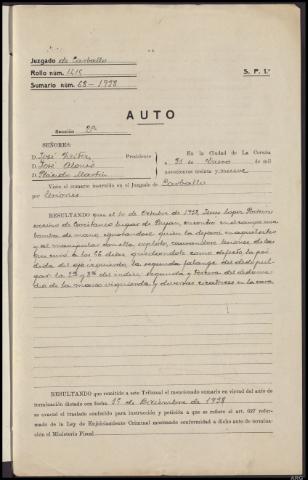 Juzgado de Carballo
Rollo núm. 1415
S. P. 1.ª
Sumario núm. 68 - 1938
AUTO
Sección 2ª
SEÑORES:
D. José Presidente
D. José Alonso
D. Plácido Martín
En la Ciudad de La Coruña
a de Enero de mil
novecientos treinta y nueve
Visto el sumario instruido en el Juzgado de Carballo
por lesiones
RESULTANDO que el 10 de Octubre de 1938, Jesus Lopez
vecino de lugar de encontro en el campo una
bomba de mano, ignorandose quien la dejara en aquel sitio
y al manipular con ella exploto, causandole lesiones de las
que curó a los 56 dias quedandole como defecto la per-
dida del ojo izquierdo, la segunda falange del dedo pul-
gar la 2ª y 3ª del indice segunda y tercera del dedo me-
dio de la mano izquierda y diversas cicatrices en la cara
RESULTANDO que remitido a este Tribunal el mencionado sumario en virtud del auto de
terminación dictado con fecha de Diciembre de 1938
se evacuó el traslado conferido para instrucción y petición a que se refiere el art. 627 refor-
mado de la Ley de Enjuiciamiento Criminal mostrando conformidad a dicho auto de termina-
ción el Ministerio Fiscal